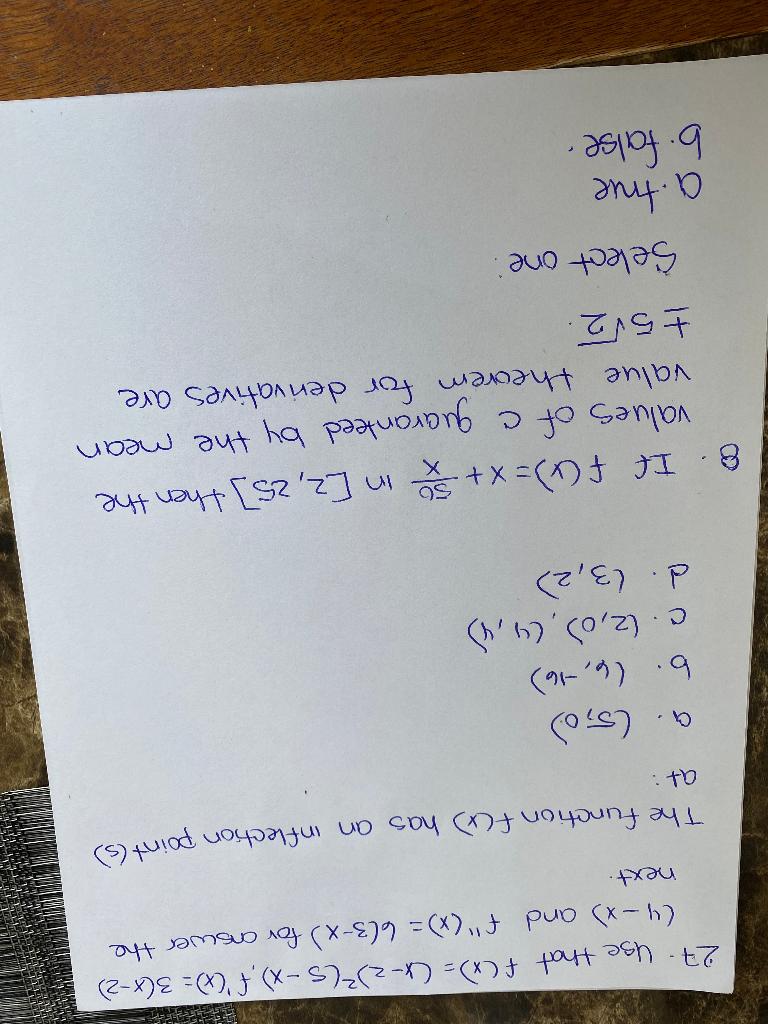 27. Use that f(x) = (x-2)²(5-x), f'(x) = 3(x-2)
(4-x) and f''(x) = 6(3-x) for answer the
next.
The function f(x) has an inflection point(s)
at:
a. (5,0)
b. (6,-16)
c. (2,0), (4,4)
d. (3,2)
8. If f(x) = x + 50/x in [2,25] then the
values of c guaranteed by the mean
value theorem for derivatives are
± 5√2.
Select one:
a. true
b. false.